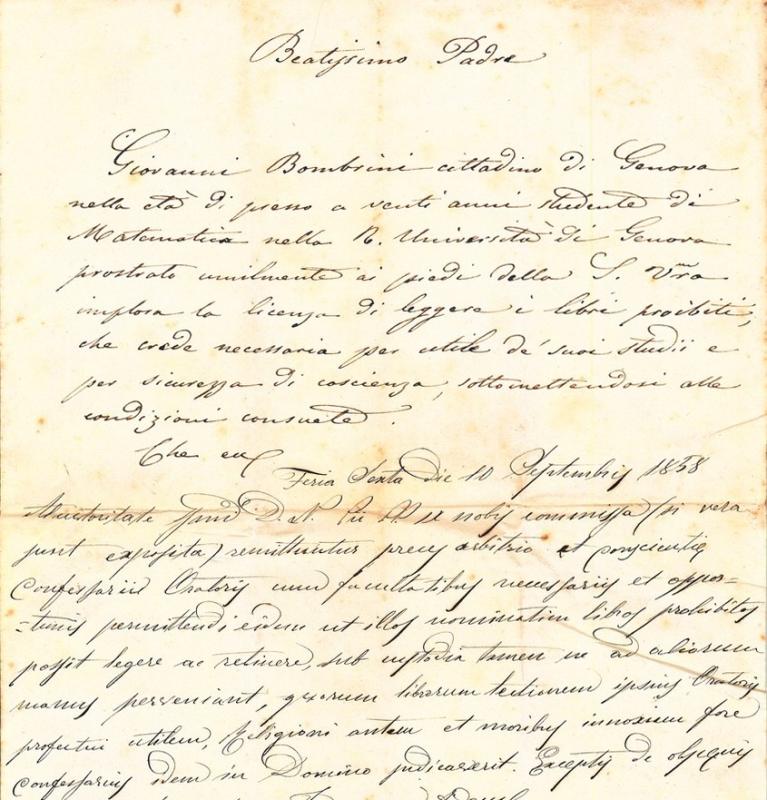 Beatissimo Padre
Giovanni Bombrini cittadino di Genova
nella età di presso a venti anni studente di
Matematica nella R. Università di Genova
prostrato umilmente ai piedi della S. Vra
implora la licenza di leggere i libri proibiti,
che crede necessaria per utile de' suoi studii e
per sicurezza di coscienza, sottomettendosi alle
condizioni consuete.
Che
Feria Sexta die 10 Septembris 1858
Auctoritate D. N. nobis commissa (si vera
sunt exposita) remittuntur preces arbitrio et conscientię
Confessarii Oratoris cum facultatibus necessariis et oppor=
=tunis permittendi eidem ut illos nominatim libros prohibitos
possit legere ac retinere, sub custodia tamen ne ad aliorum
manus perveniant, quorum librorum lectionem ipsius Oratoris
profectui utilem, Religioni autem et moribus innoxium fore
Confessarius idem in Domino judicaverit. Exceptis de